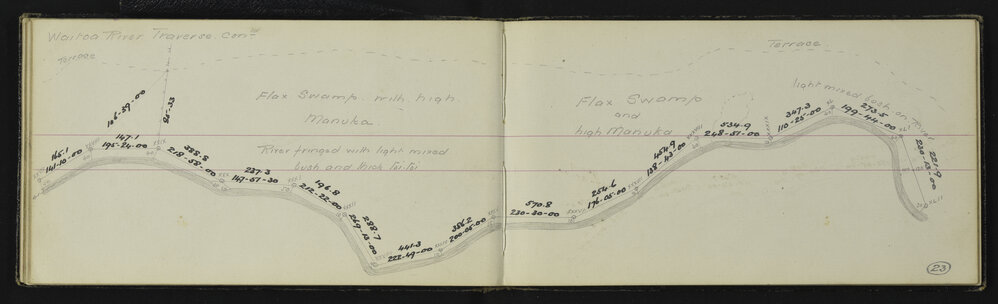 Waitoa River Traverse Con^td
Terrace
Terrace
Flax Swamp with high
Manuka
River fringed with light mixed
bush and thick Toi-Toi
Flax Swamp
and
high Manuka
light mixed bush on River
165.1
141-10-00
166-59-00
147.1
195-24-00
388.8
218-58-00
237.3
147-51-30
196.8
212-22-00
288.7
269-13-00
441.3
222-49-00
386.2
200-05-00
570.8
230-30-00
254.6
176-05-00
454.9
138-43-00
534.9
248-51-00
347.3
110-25-00
273.5
199-44-00
221.9
23